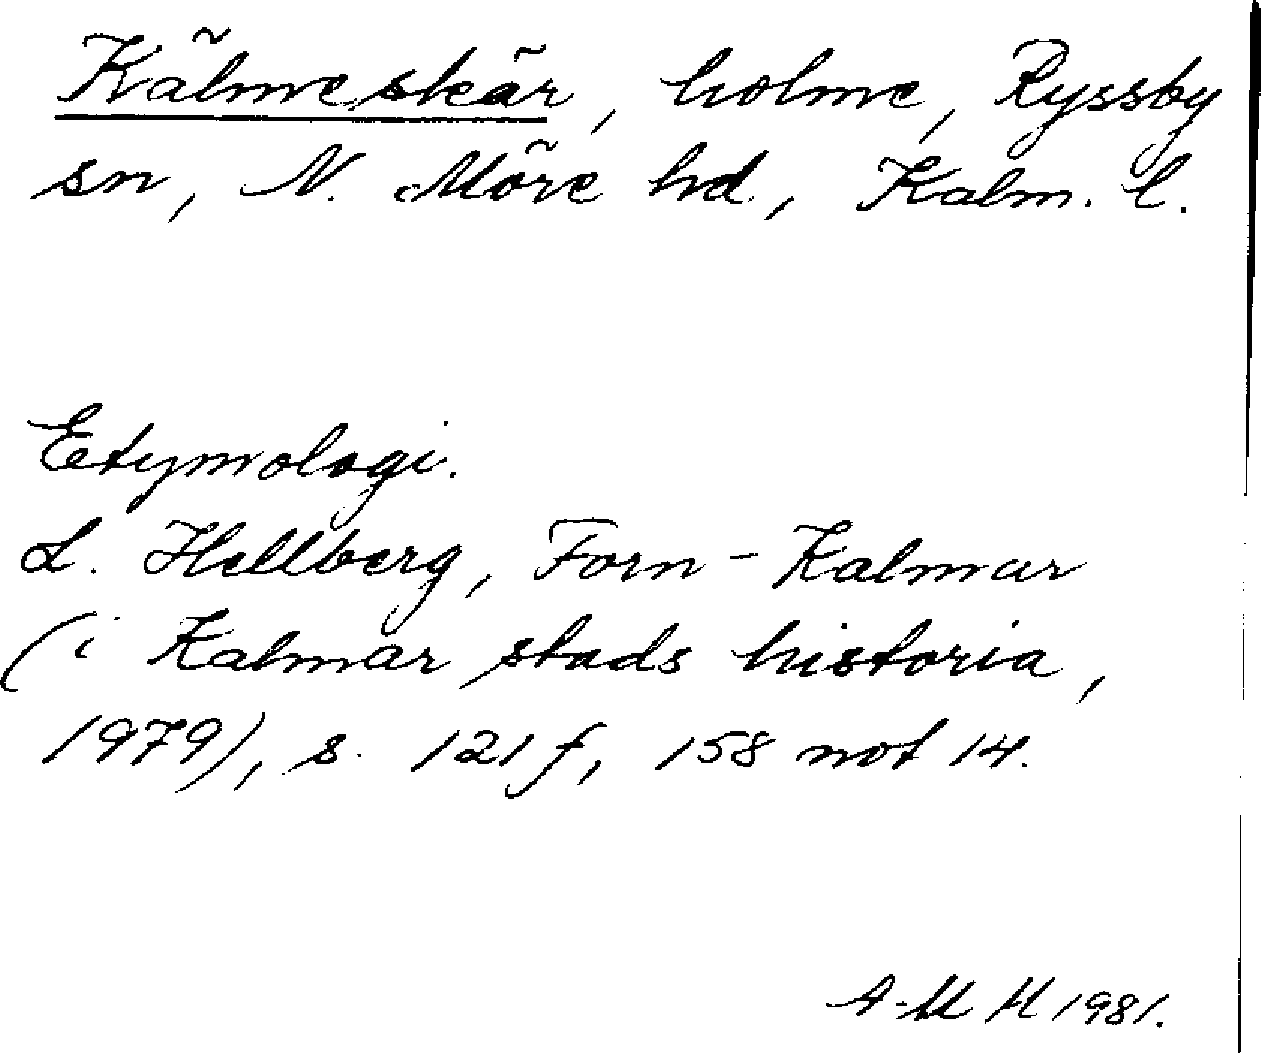 Kälmeskär, holme, Ryssby
sn, N. Möre hd., Kalm. l.
Etymologi.
L. Hellberg, Forn-Kalmar
(i Kalmar stads historia,
1979), s. 121 f, 158 not 14.
A-M H 1981.